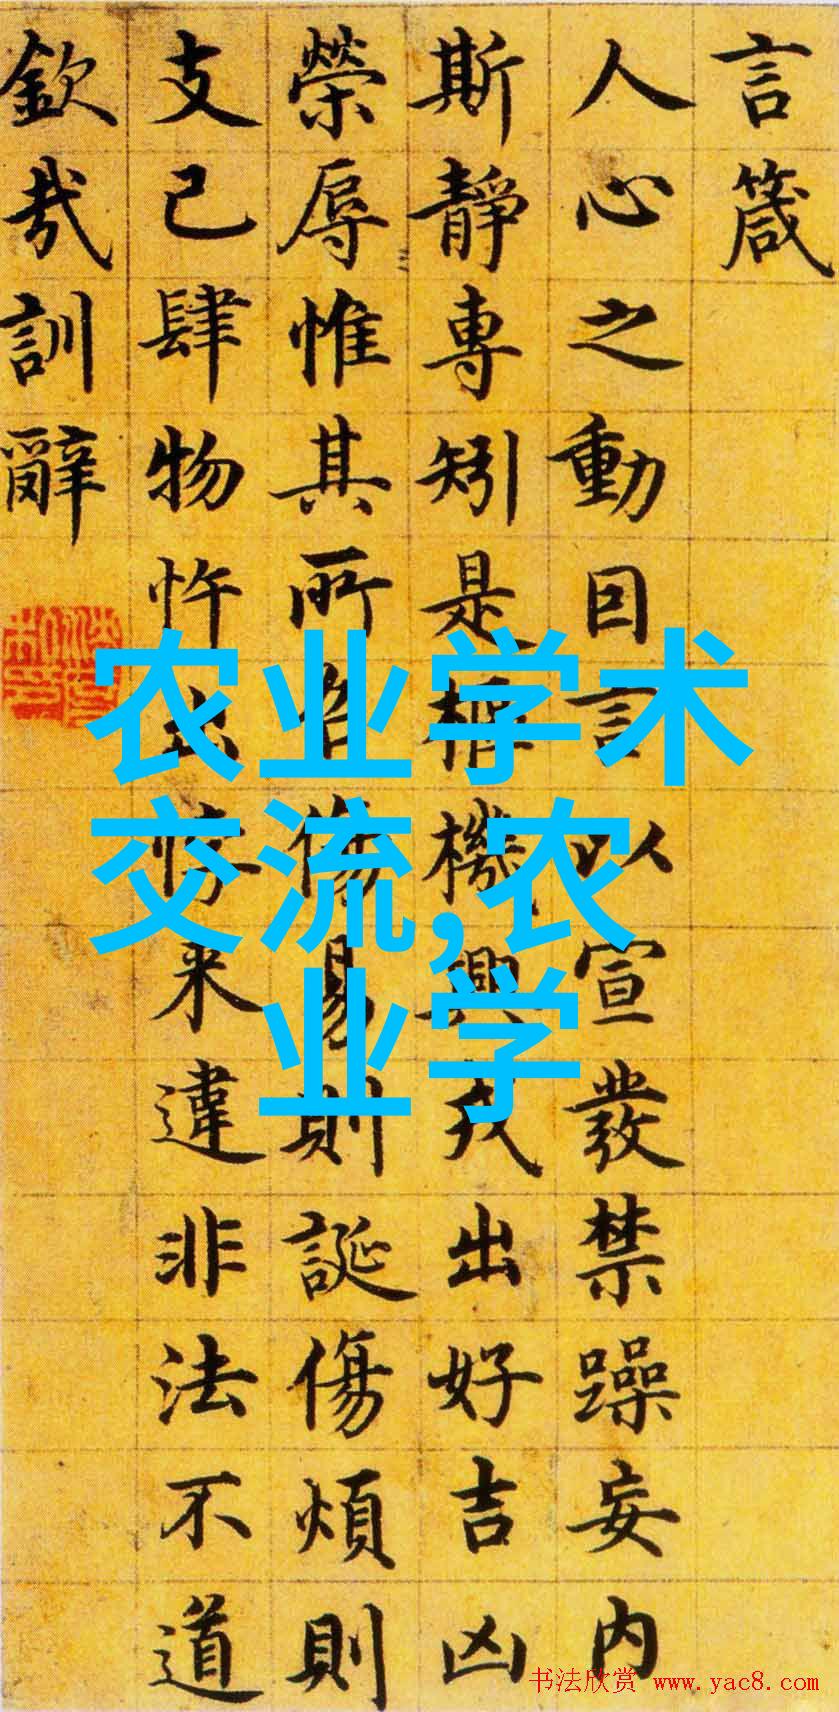 言箴
人心之動因言以宣發禁躁妄内
斯靜專矧是樞機興戎出好吉凶
榮辱惟其所召傷易則誕傷煩則
支己肆物忤出悖来違非法不道
欽哉訓辭
农业学术
交流,农
业学
书法欣赏 www.yac8.com